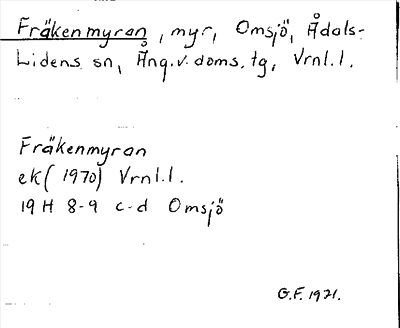 Fräkenmyran, myr, Omsjö, Ådals-
Lidens sn, Ång.v.doms.tg, Vrnl.l.
Fräkenmyran
ek (1970) Vrnl.l.
19H 8-9 c-d Omsjö
G.F. 1971.